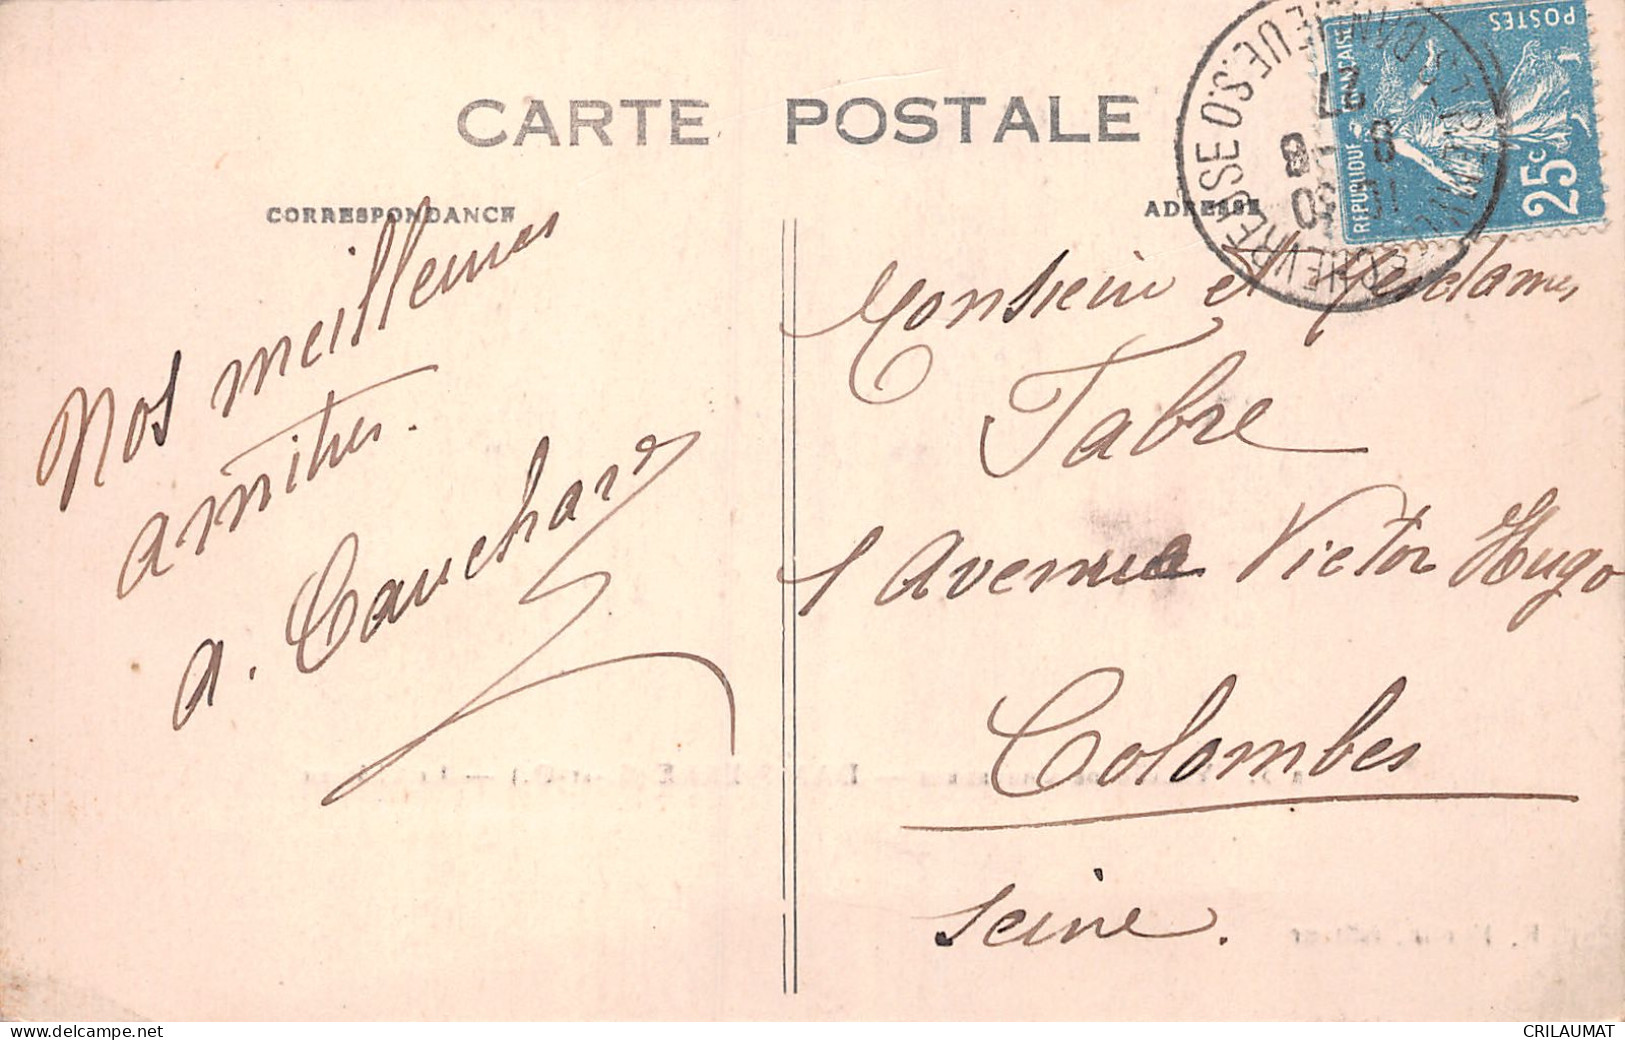 CARTE POSTALE
CORRESPONDANCE
ADRESSE
POSTES
REPUBLIQUE FRANÇAISE
25c
CHEVREUSE
Nos meilleures
amitiés.
a. Cauchard
Monsieur et Mesdames
Fabre
1 Avenue Victor Hugo
Colombes
Seine.
https://www.delcampe.net
CRILAUMAT